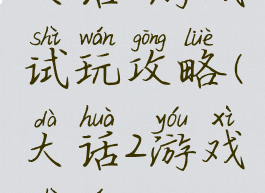 shì wán gōng lüè
试玩攻略(
dà huà yóu xì
大话2游戏